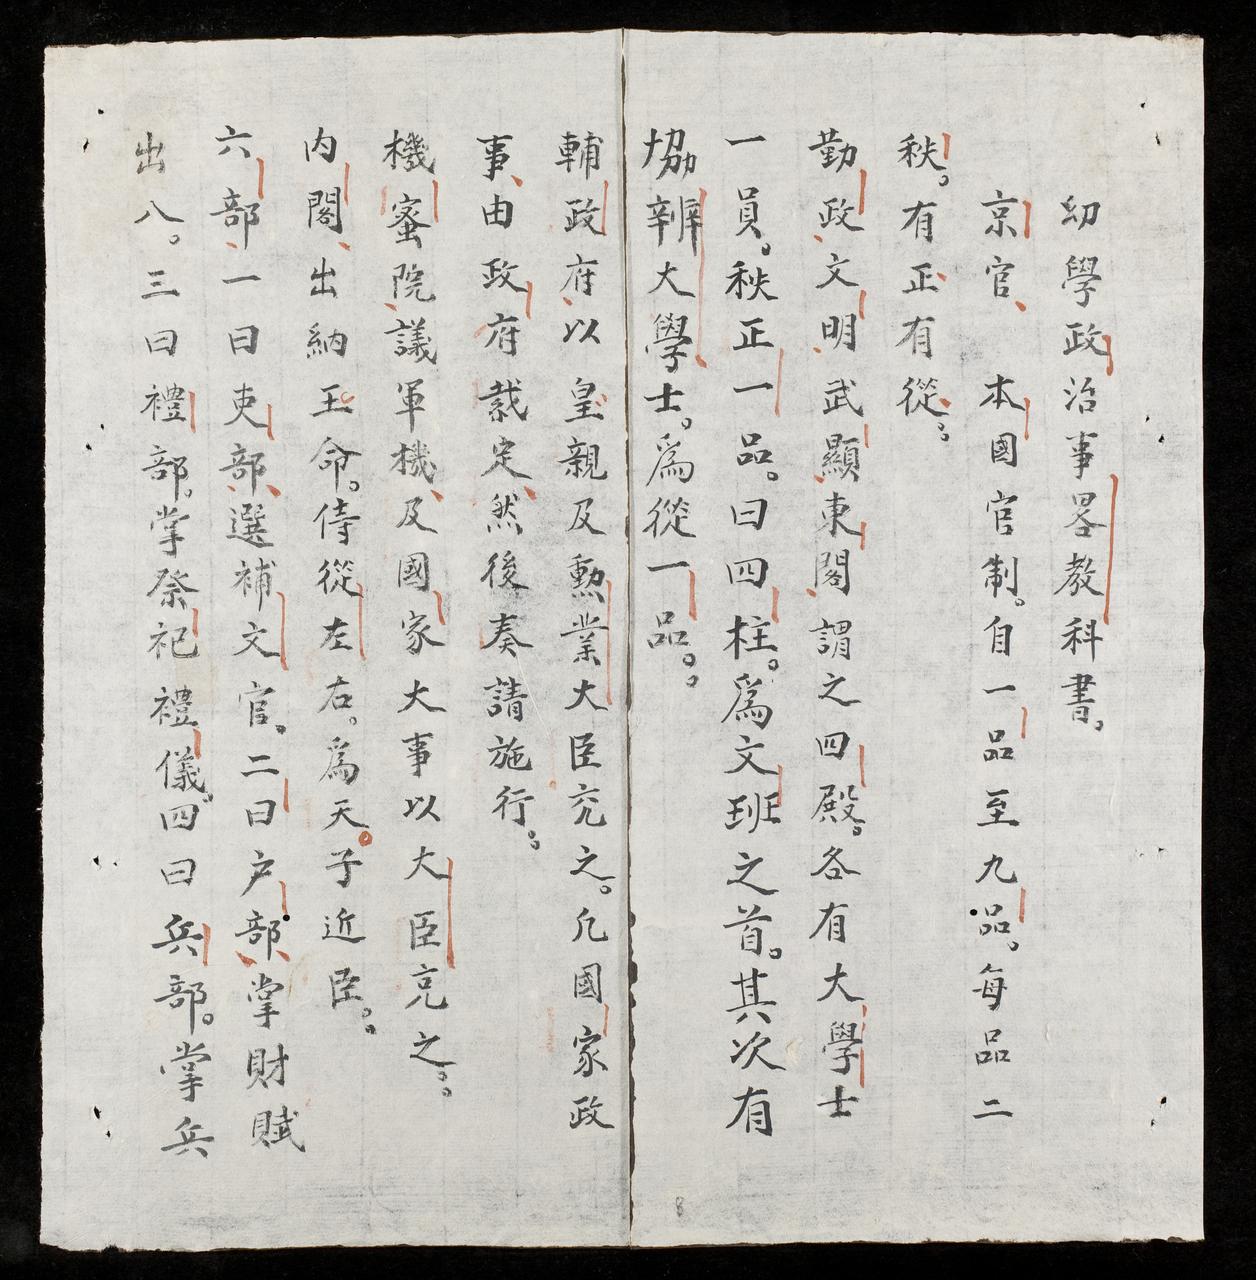 幼學政治事畧教科書。
京官、本國官制。自一品至九品。每品二
秩。有正有從。
勤政、文明、武顯、東閣、謂之四殿。各有大學士
一員。秩正一品。曰四柱。爲文班之首。其次有
協辦大學士。爲從一品。
輔政府、以皇親及勲業大臣充之。凡國家政
事、由政府裁定、然後奏請施行。
機蜜院、議軍機、及國家大事以大臣充之。
内閣、出納王命。侍從左右。爲天子近臣。
六部、一曰吏部、選補文官。二曰户部、掌財賦
出入。三曰禮部。掌祭祀禮儀。四曰兵部。掌兵
8